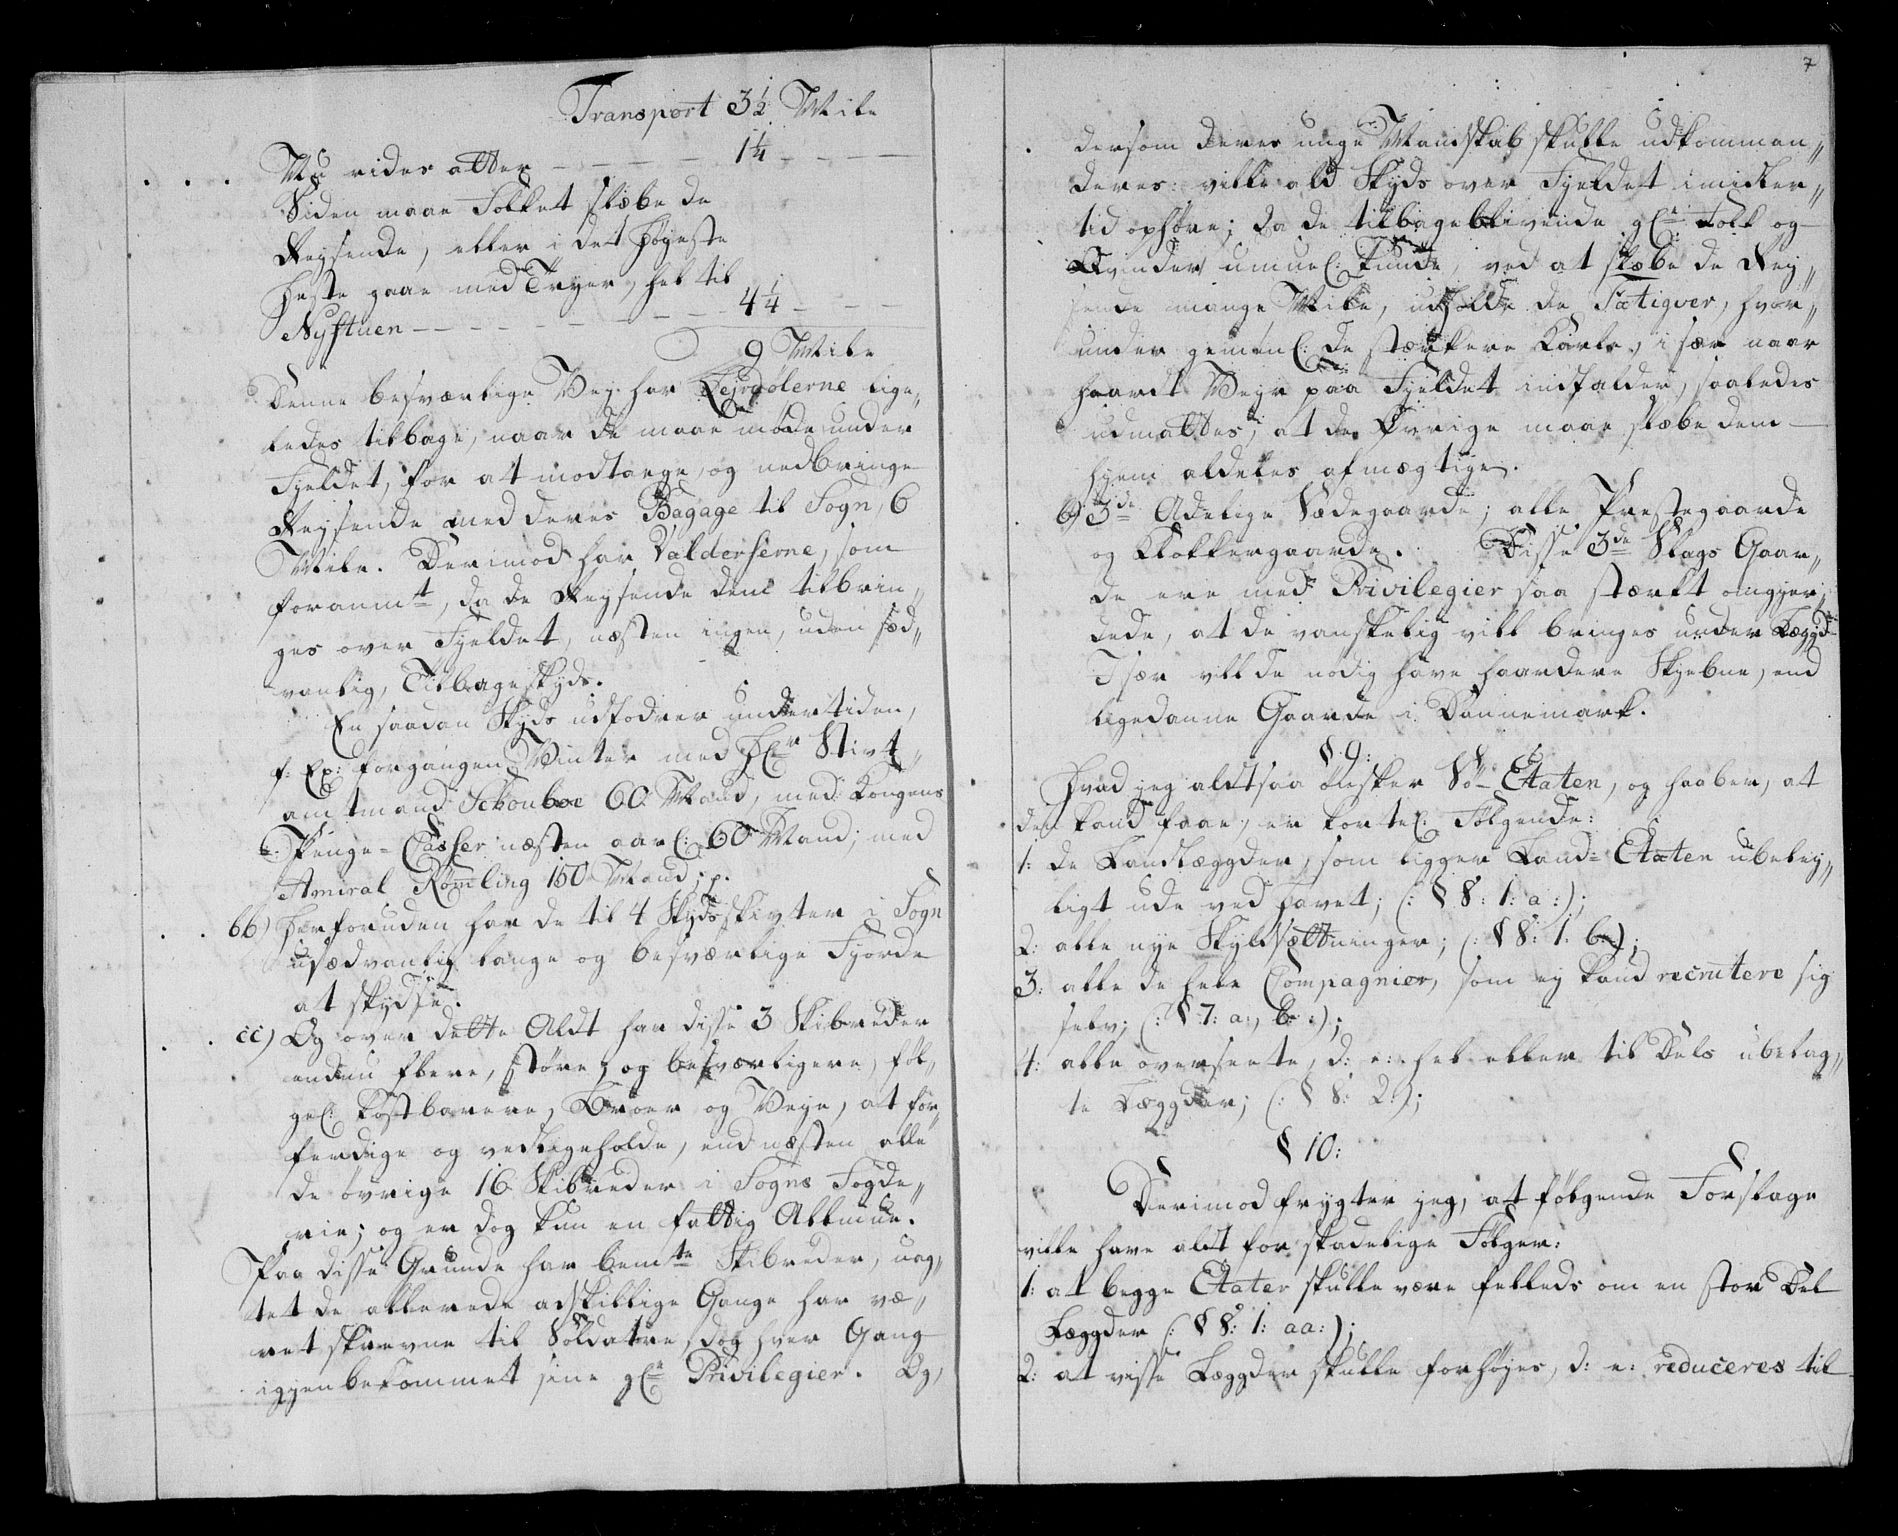 Transport 3½ Mile
Nu rides atter — — — — 1¼ — — —
Siden maae Folket slæbe de
Reysende, eller i det høyeste
Heste gaae med Tryer, hel til
Nystuen — — — — — — 4¼ — — —
9 Mile
Denne besværlige Vey har Leirdølerne lige„
ledes tilbage, naar de maae møde under
Fjeldet, for at modtange, og nedbringe
Reysende med deres Bagage til Sogn, 6
Mile. Derimod har Valderserne, som
foranmt, da de Reysende dem tilbrin„
ges over Fjeldet, næsten ingen, uden sæd„
vanlig, Tilbageskyds.
En saadan Skyds udfodrer undertiden,
f: Ex: forgangen Vinter med Hr Stivt„
amtmand Schouboe 60 Mand, med Kongens
Penge-Casser næsten aarl: 60 Mand; med
Amiral Rømling 150 Mand; p.
bb) Herforuden har de til 4 Skydsskivter i Sogn
usædvanlig lange og besværlige Fjorde
at skydse.
cc) Og over dette Aldt har disse 3 Skibreder
endnu flere, større og besværligere, føl„
gel: kostbarere, Broer og Veye, at for„
ferdige og vedligeholde, end næsten alle
de øvrige 16 Skibreder i Sogns Fogde„
rie; og er dog kun en fattig Allmue.
Paa disse Grunde har bemte Skibreder, uag„
tet de allerede adskillige Gange har væ„
ret skrevne til Soldater, dog hver Gang
igjen bekommet sine gle Privilegier. Og,
7
dersom deres unge Mandskab skulle udkomman„
deres: ville ald Skyds over Fjeldet imidler„
tid ophøre; da de tilbageblivende gle Folk og
Qvinder umuel: kunde, ved at slæbe de Rey„
sende mange Mile, udholde de Fatiqver, hvor„
under gemenl: de stærkere Karle, i sær naar
haardt Veyr paa Fjeldet indfalder, saaledes
udmattes, at de Øvrige maae slæbe dem
hjem aldeles afmægtige.
6) 3de Adelige Sædegaarde; alle Prestegaarde
og Klokkergaarde. Disse 3de Slags Gaar„
de ere med Privilegier saa stærkt omgjer„
dede, at de vanskelig vill bringes under Lægd
I sær vill de nødig have haardere Skjebne, end
ligedanne Gaarde i Dannemark.
§ 9:
Hvad jeg altsaa ønsker Sö-Etaten, og haaber, at
den kand faae, er kortel: Følgende:
1: de Landlægder, som ligger Land-Etaten ubeley„
ligt ude ved Havet; (: § 8: 1: a :);
2: alle nye Skyldsættninger; (: § 8: 1. b:);
3: alle de hele Compagnier, som ej kand recrutere sig
selv; (: § 7: a:, b :);
4: alle overseete, d: e: hel eller til Dels ubelag„
te Lægder; (: § 8: 2:);
§ 10:
Derimod frygter jeg, at følgende Forslage
ville have alt for skadelige Følger:
1: at begge Etater skulle være felleds om en stor Del
Lægder (: § 8: 1: aa:);
2: at visse Lægder skulle forhøyes, d: e: reduceres til